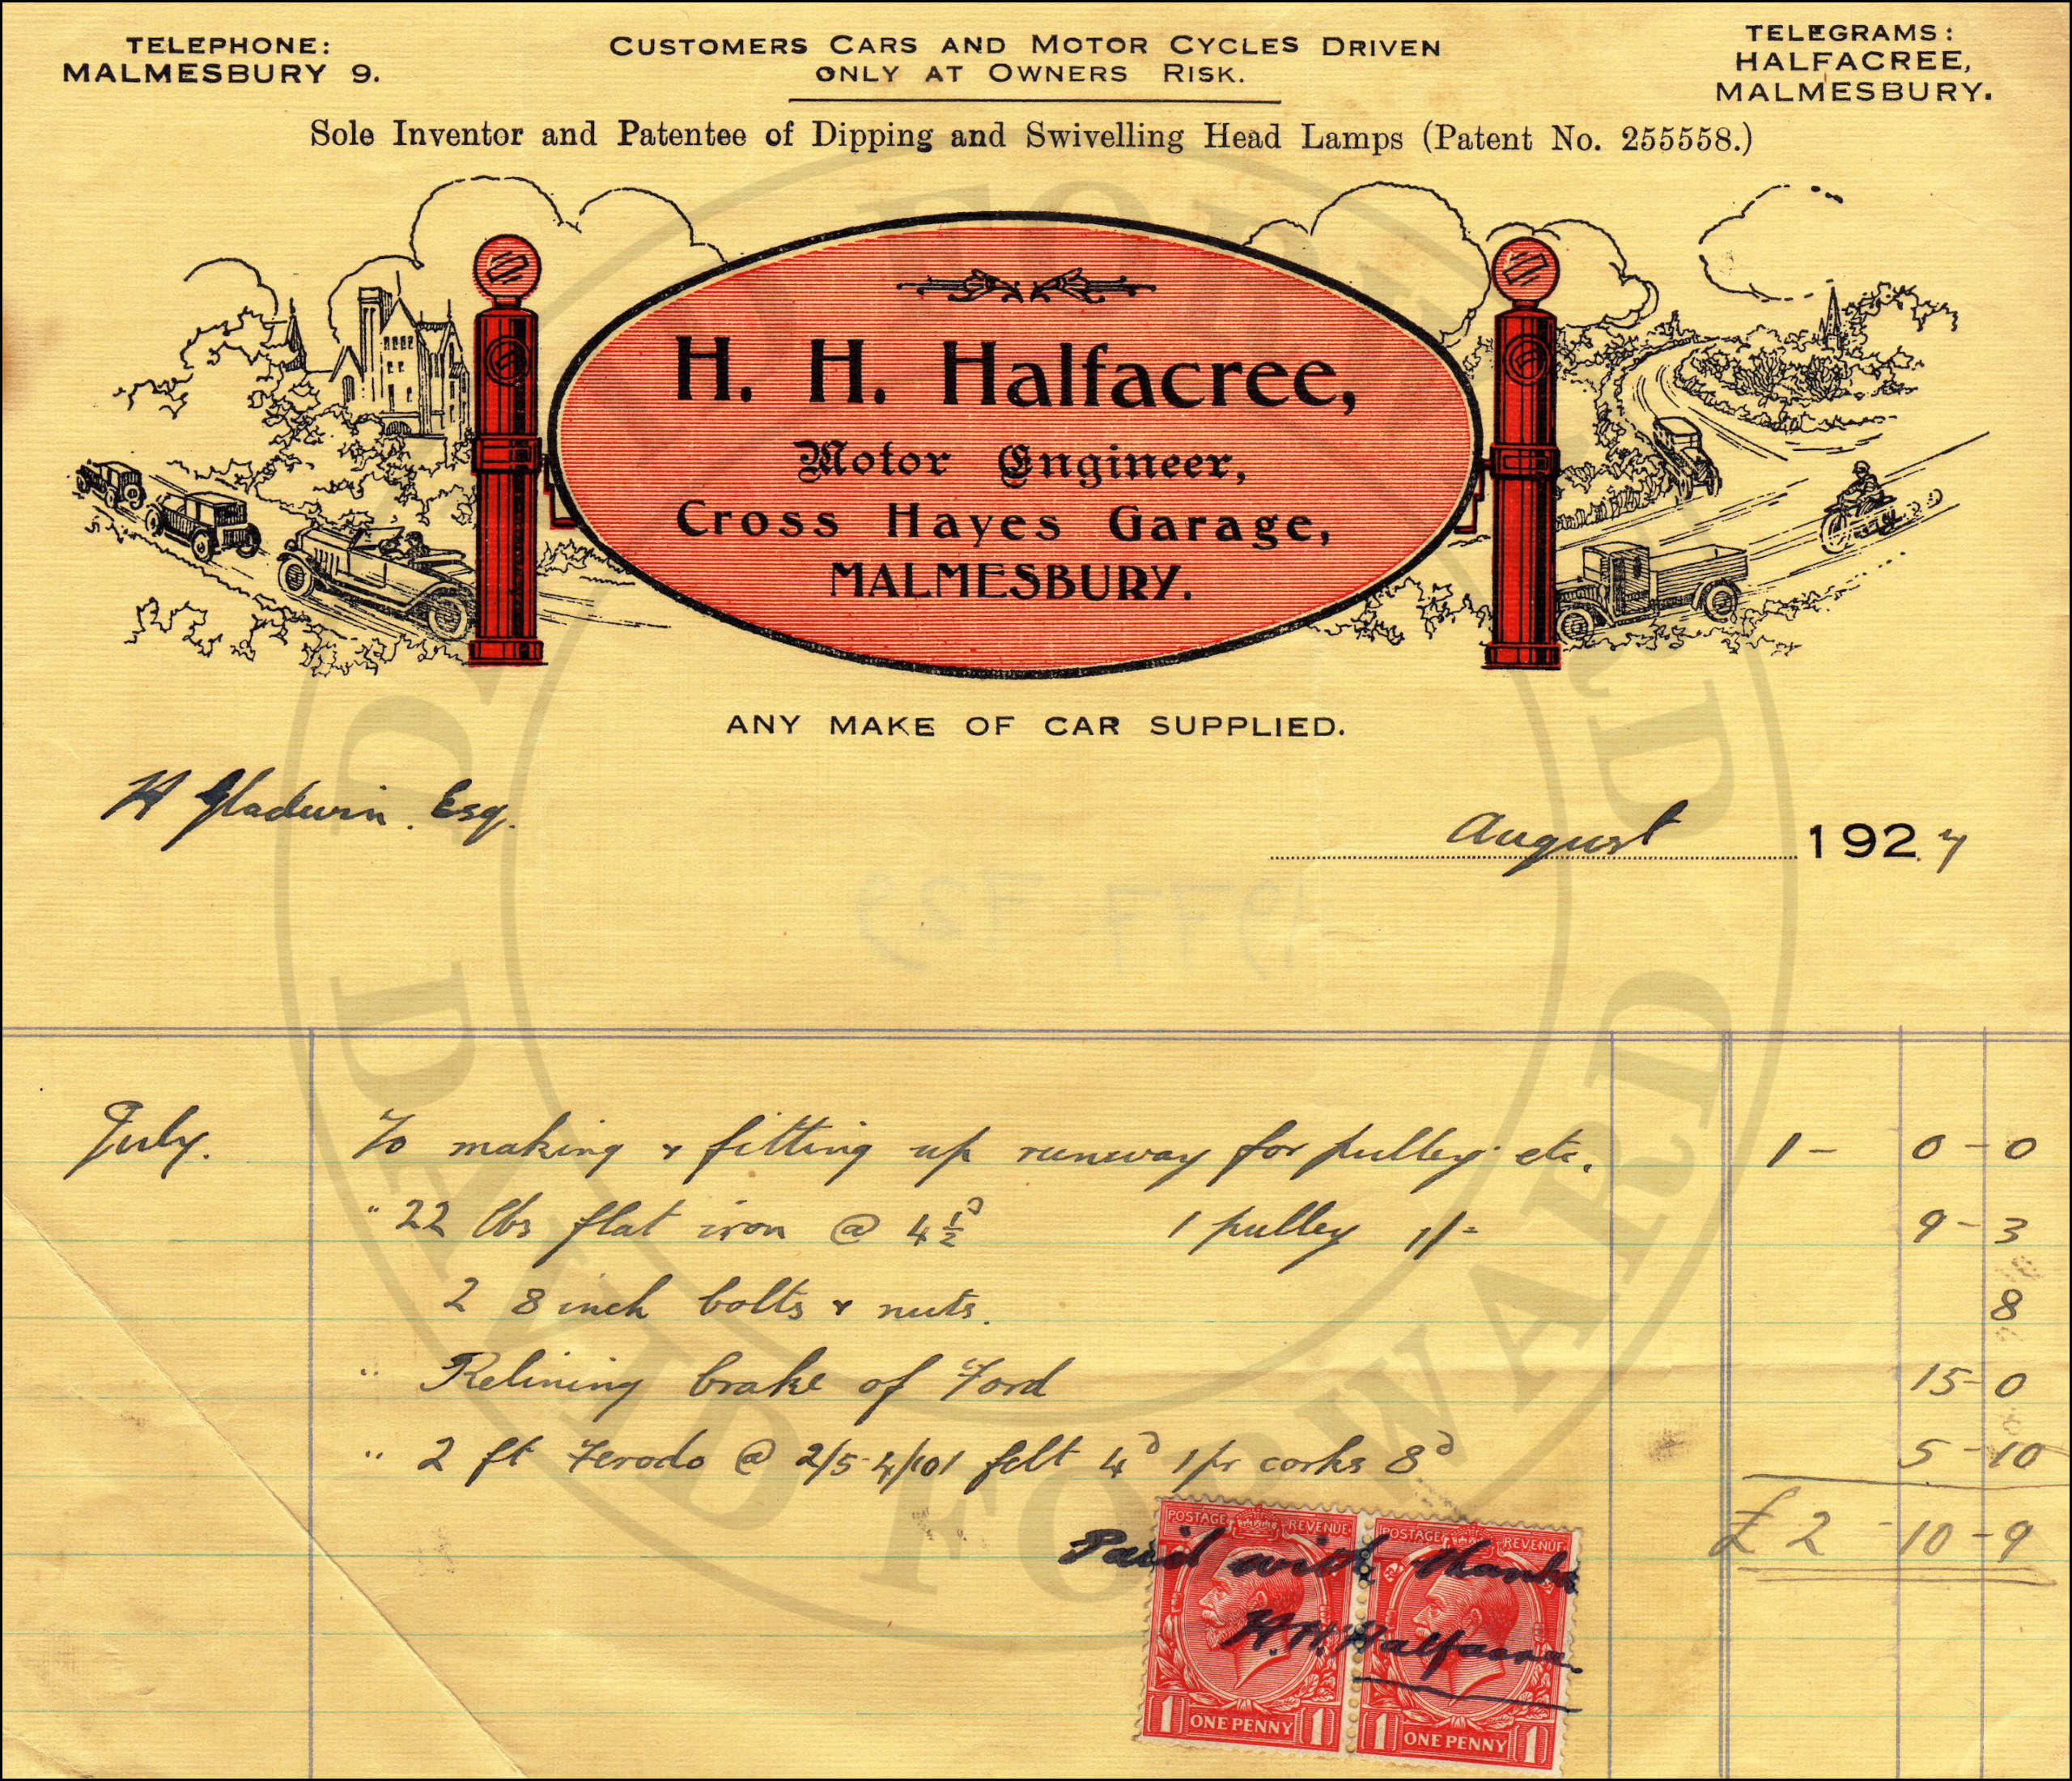 TELEPHONE:
MALMESBURY 9.
CUSTOMERS CARS AND MOTOR CYCLES DRIVEN
ONLY AT OWNERS RISK.
TELEGRAMS:
HALFACREE,
MALMESBURY.
Sole Inventor and Patentee of Dipping and Swivelling Head Lamps (Patent No. 255558.)
H. H. Halfacree,
Motor Engineer,
Cross Hayes Garage,
MALMESBURY.
ANY MAKE OF CAR SUPPLIED.
H Gladwin. Esq.
August 1927
July. To making & fitting up runway for pulley etc. 1 - 0 - 0
" 22 lbs flat iron @ 4½d 1 pulley 1/- 9 - 3
2 8 inch bolts & nuts. 8
" Relining brake of Ford 15 - 0
" 2 ft Ferodo @ 2/5 - 4/10 1 felt 4d 1 pr corks 8d 5 - 10
£ 2 - 10 - 9
POSTAGE REVENUE POSTAGE REVENUE
Paid with thanks
H. H. Halfacree
1 ONE PENNY 1 1 ONE PENNY 1
DAVID FORWARD
DAVID FORWARD